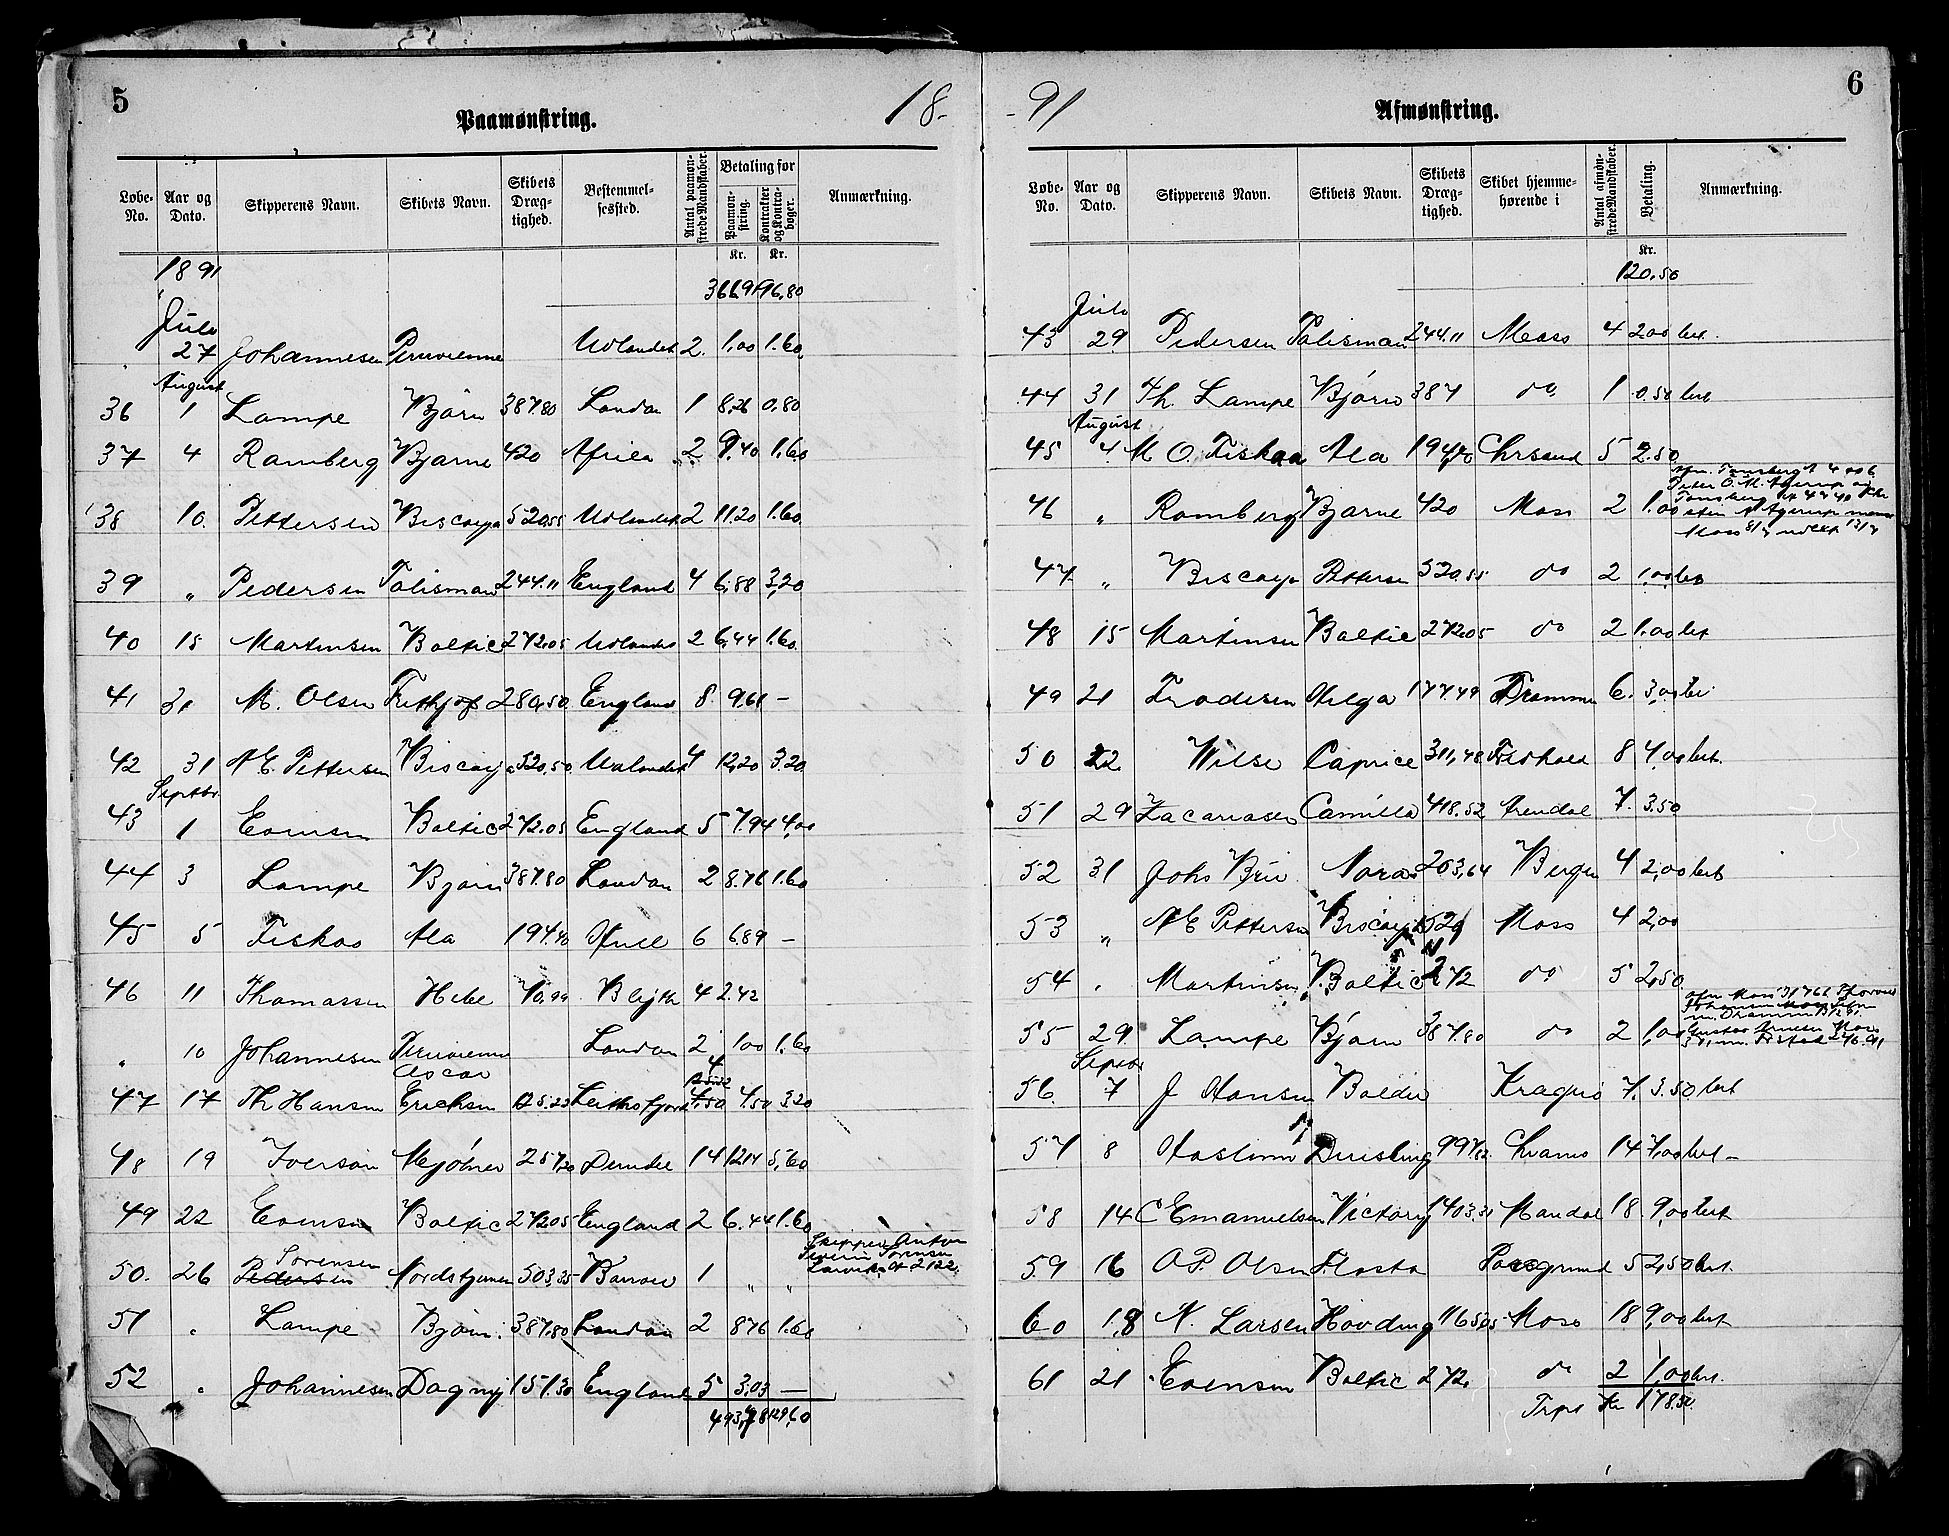 5
Paamønstring.
18-
Løbe-No. Aar og Dato. Skipperens Navn. Skibets Navn. Skibets Dræg-tighed. Bestemmel-sessted. Antal paamøn-strede Mandskaber. Betaling for Paamøn-string. Kontrakter og Kontra-bøger. Anmærkning.
Kr. Kr.
1891
366.91 96,80
Juli
27 Johannesen Peruvienne Udlandet 2. 1,00 1.60
August
36 1 Lampe Bjørn 387.80 London 1 8,26 0,80
37 4 Ramberg Bjarne 420 Africa 2 9,40 1.60
38 10. Pettersen Biscaya 520,55 Udlandet 2 11.20 1.60
39 " Pedersen Talisman 244.11 England 4 6,88 3,20
40 15 Martinsen Baltic 272,05 Udlandet 2 6,44 1.60
41 31 M. Olsen Frithjof 280,50 England 8 9,61 –
42 31 N E. Pettersen Biscaya 520,50 Udlandet 4 12,20 3.20
Septbr.
43 1 Evensen Baltic 272.05 England 5 7.94 4,00
44 3 Lampe Bjørn 387.80 London 2 8.76 1.60
45 5 Fiskaa Ala 194.40 6 6.89 –
46 11 Thomassen Hebe 70,99 Blyth 4 2.42
" 10 Johannesen Peruvienne London 2 1,00 1.60
Oscar 4
47 17 Th Hansen Ericksen 125.22 4,50 4.50 3,20
48 19 Iverson Mjölner 257,20 Dundee 14 12.14 5,60
49 22 Evensen Baltic 272,05 England 2 6.44 1.60
Sørensen Skipper Anton
50. 26 Pedersen Nordstjernen 503,35 Barrow 1 " " Severin Sørensen
Larvik, A 2122
51 " Lampe Bjørn. 387,80 London 2 8,76 1.60
52 " Johannesen Dagny 151.30 England 5 3,03 –
493,78 129,60
-91
Afmønstring.
6
Løbe-No. Aar og Dato. Skipperens Navn. Skibets Navn. Skibets Dræg-tighed. Skibet hjemme-hørende i Antal afmøn-strede Mandskaber. Betaling. Anmærkning.
Kr.
120,50
Juli
43 29. Pedersen Talisman 244.11 Moss 4 2,00 bet.
44 31 Th. Lampe Bjørn 387 do 1 0.50 bet
August
45 4. M. O. Fiskaa Ala 194,40 Chrsand 5 2.50
46 " Ramberg Bjarne 420 Moss 2 1.00
47 " Biscaya Pettersen 520,55 do 2 1,00 bet
48 15 Martinsen Baltic 272,05 do 2 1,00 bet
49 21 Frodesen Helga 177.49 Drammen 6. 3,00 bet
50 22 Wilse Caprice 311,48 8 4,00 bet.
51 29 Zacariasen Camilla 418.52 Arendal 7. 3.50
52 31 Johs Brun Nora 203,64 Bergen 4 2,00 bet
53 " N E Pettersen Biscaya 520 Moss 4 2,00
54 " Martinsen Baltic 272 do 5 2,50
55 29 Lampe Bjørn 387.80 do 2 1,00
Septbr
56. 7 J Hansen Balder Kragerø 7. 3.50 bet
57 8 Haslum Duisburg 997,82 14 7,00 bet –
58 14 C Emanuelsen Victory 1403.31 Mandal 18 9,00 bet
59 16 O P. Olsen Flosta Porsgrund 5 2,50 bet.
60 18 N. Larsen Høvding 1165,05 Moss 18 9,00 bet
61 21 Evensen Baltic 272. do 2 1,00 bet.
Trp Kr 178.50